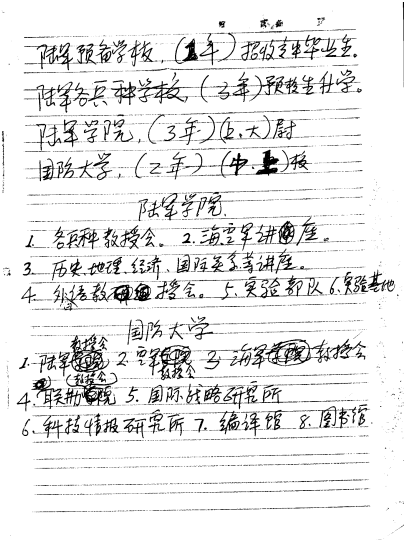 陆军预备学校，(1年) 招收高中毕业生。
陆军各兵种学校，(3年)预校生升学。
陆军学院，(3年)(上、大)尉
国防大学，(2年) (中、上)校
陆军学院
1. 各兵种教授会。 2. 海空军讲座。
3. 历史、地理、经济、国际关系等讲座。
4. 外语教授会。 5. 实验部队 6. 实验基地
国防大学
1. 陆军教授会 2. 空军教授会 3. 海军教授会
4. 联勤学院 5. 国际战略研究所
6. 科技情报研究所 7. 编译馆 8. 图书馆